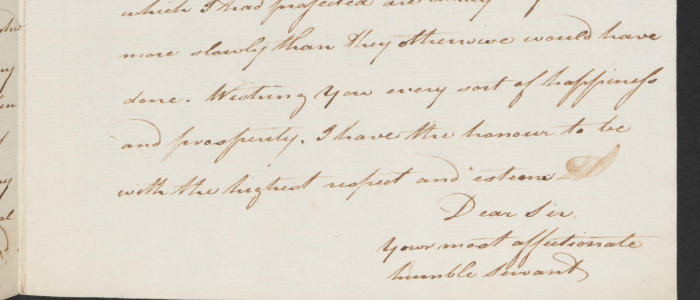 which I had projected are
more slowly than they otherwise would have
done. Wishing you every sort of happiness
and prosperity. I have the honour to be
with the highest respect and esteem
Dear Sir
Your most affectionate
humble Servant